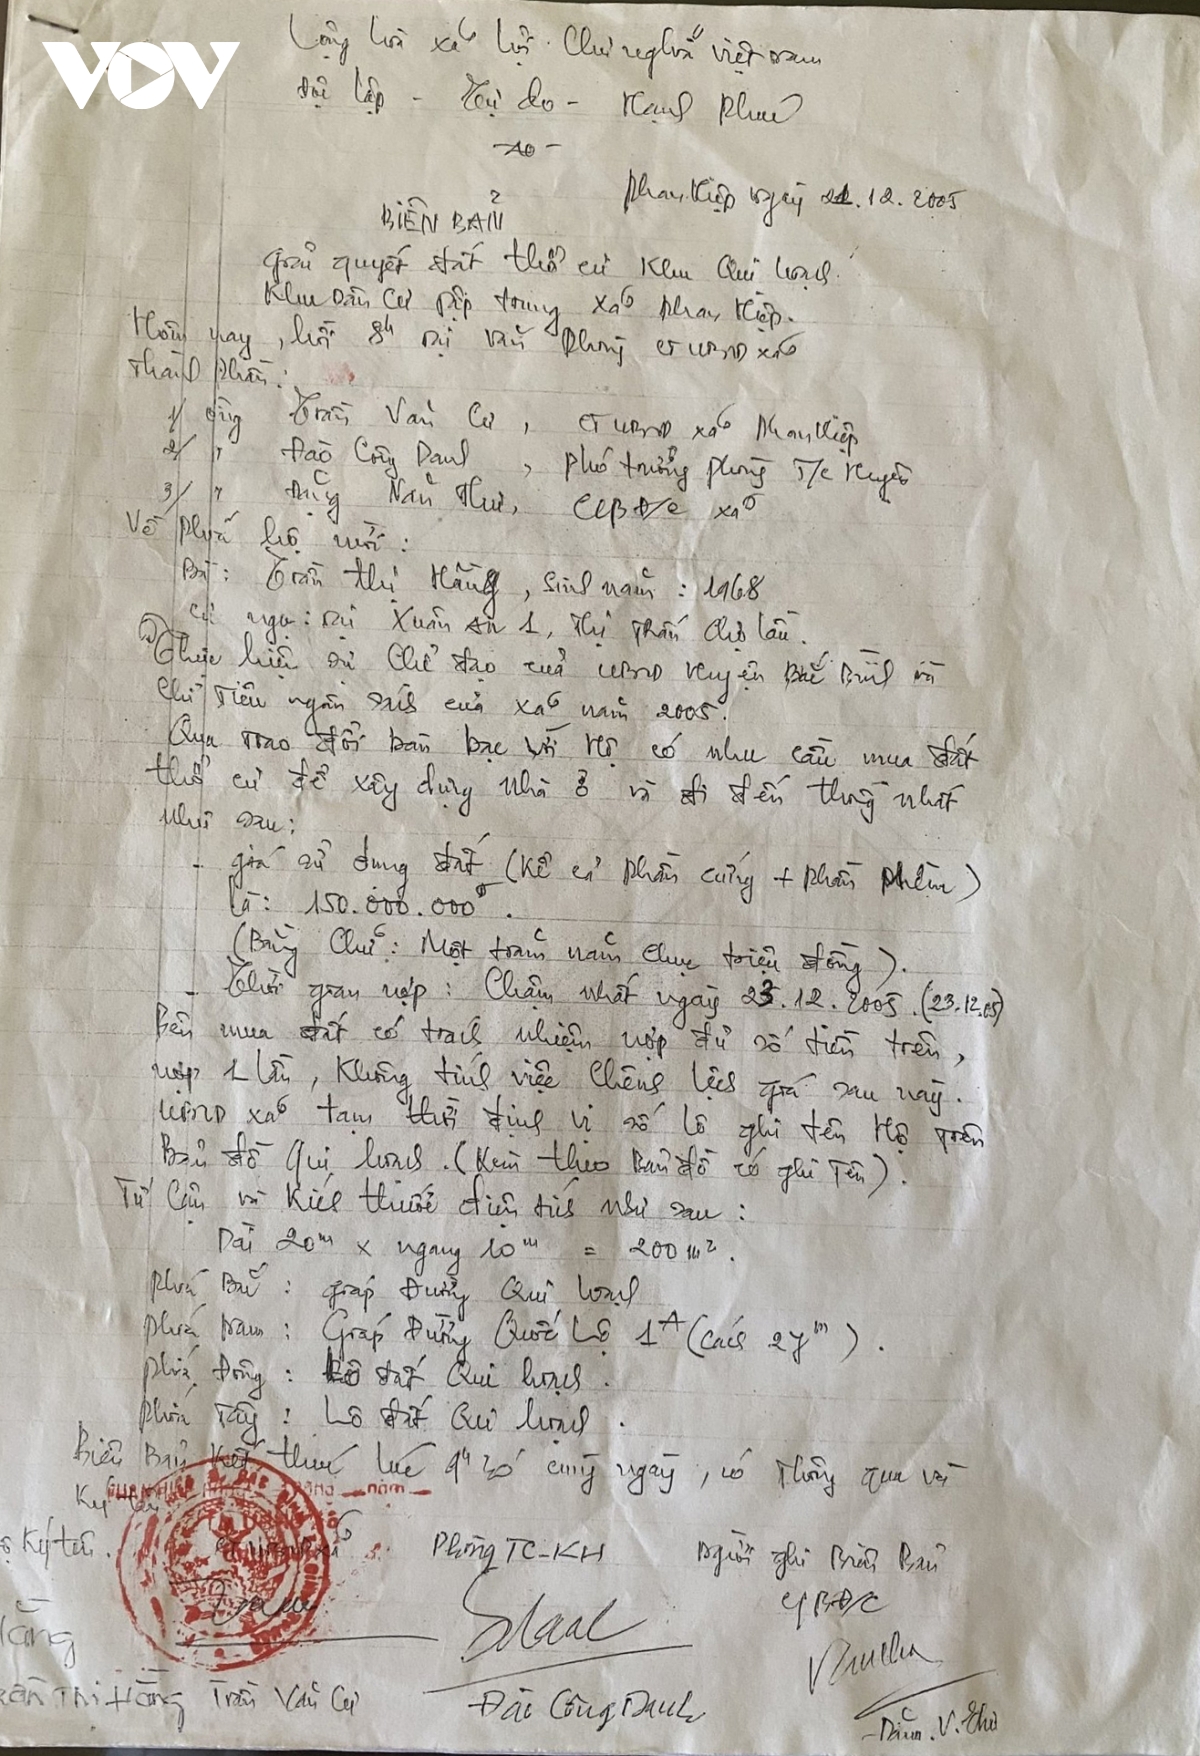 VOV
Cộng hòa xã hội chủ nghĩa Việt Nam
Độc lập - Tự do - Hạnh phúc
Phan Hiệp ngày 21.12.2005
BIÊN BẢN
Giải quyết đất thổ cư khu Qui hoạch
Khu dân cư tập trung xã Phan Hiệp.
Hôm nay, hồi 8h tại Văn phòng CT UBND xã
Thành phần:
1/ ông Trần Văn Cư, CT UBND xã Phan Hiệp
2/ " Đào Công Danh, phó trưởng phòng T/c huyện
3/ " Đặng Văn Thư, CBĐ/c xã
Về phía hộ mới:
Bà: Trần Thị Hằng, sinh năm: 1968
Cư ngụ: tại Xuân An 1, Thị Trấn Chợ Lầu.
Thực hiện sự chỉ đạo của UBND huyện Bắc Bình và
chỉ tiêu ngân sách của xã năm 2005.
Qua trao đổi bàn bạc với hộ có nhu cầu mua đất
thổ cư để xây dựng nhà ở và đi đến thống nhất
như sau:
- giá sử dụng đất (kể cả phần cứng + phần mềm)
là: 150.000.000đ.
(Bằng chữ: Một trăm năm chục triệu đồng).
- Thời gian nộp: Chậm nhất ngày 23.12.2005. (23.12.05)
Bên mua đất có trách nhiệm nộp đủ số tiền trên,
nộp 1 lần, không tính việc chênh lệch giá sau này.
UBND xã tạm thời định vị số lô ghi tên hộ trên
Bản đồ Qui hoạch. (Kèm theo Bản đồ có ghi Tên).
Tứ cận và kích thước diện tích như sau:
Dài 20m x ngang 10m = 200m2.
phía Bắc: giáp Đường Qui hoạch
phía Nam: Giáp Đường Quốc Lộ 1A (cách 27m).
phía Đông: Lô đất Qui hoạch.
phía Tây: Lô đất Qui hoạch.
Biên Bản kết thúc lúc 9h cùng ngày, có thông qua và
ký tên
ký tên. CT UBND xã Phòng TC-KH Người ghi Biên Bản
CBĐ/C
Hằng
Trần Thị Hằng Trần Văn Cư Đào Công Danh Đặng.V.Thư